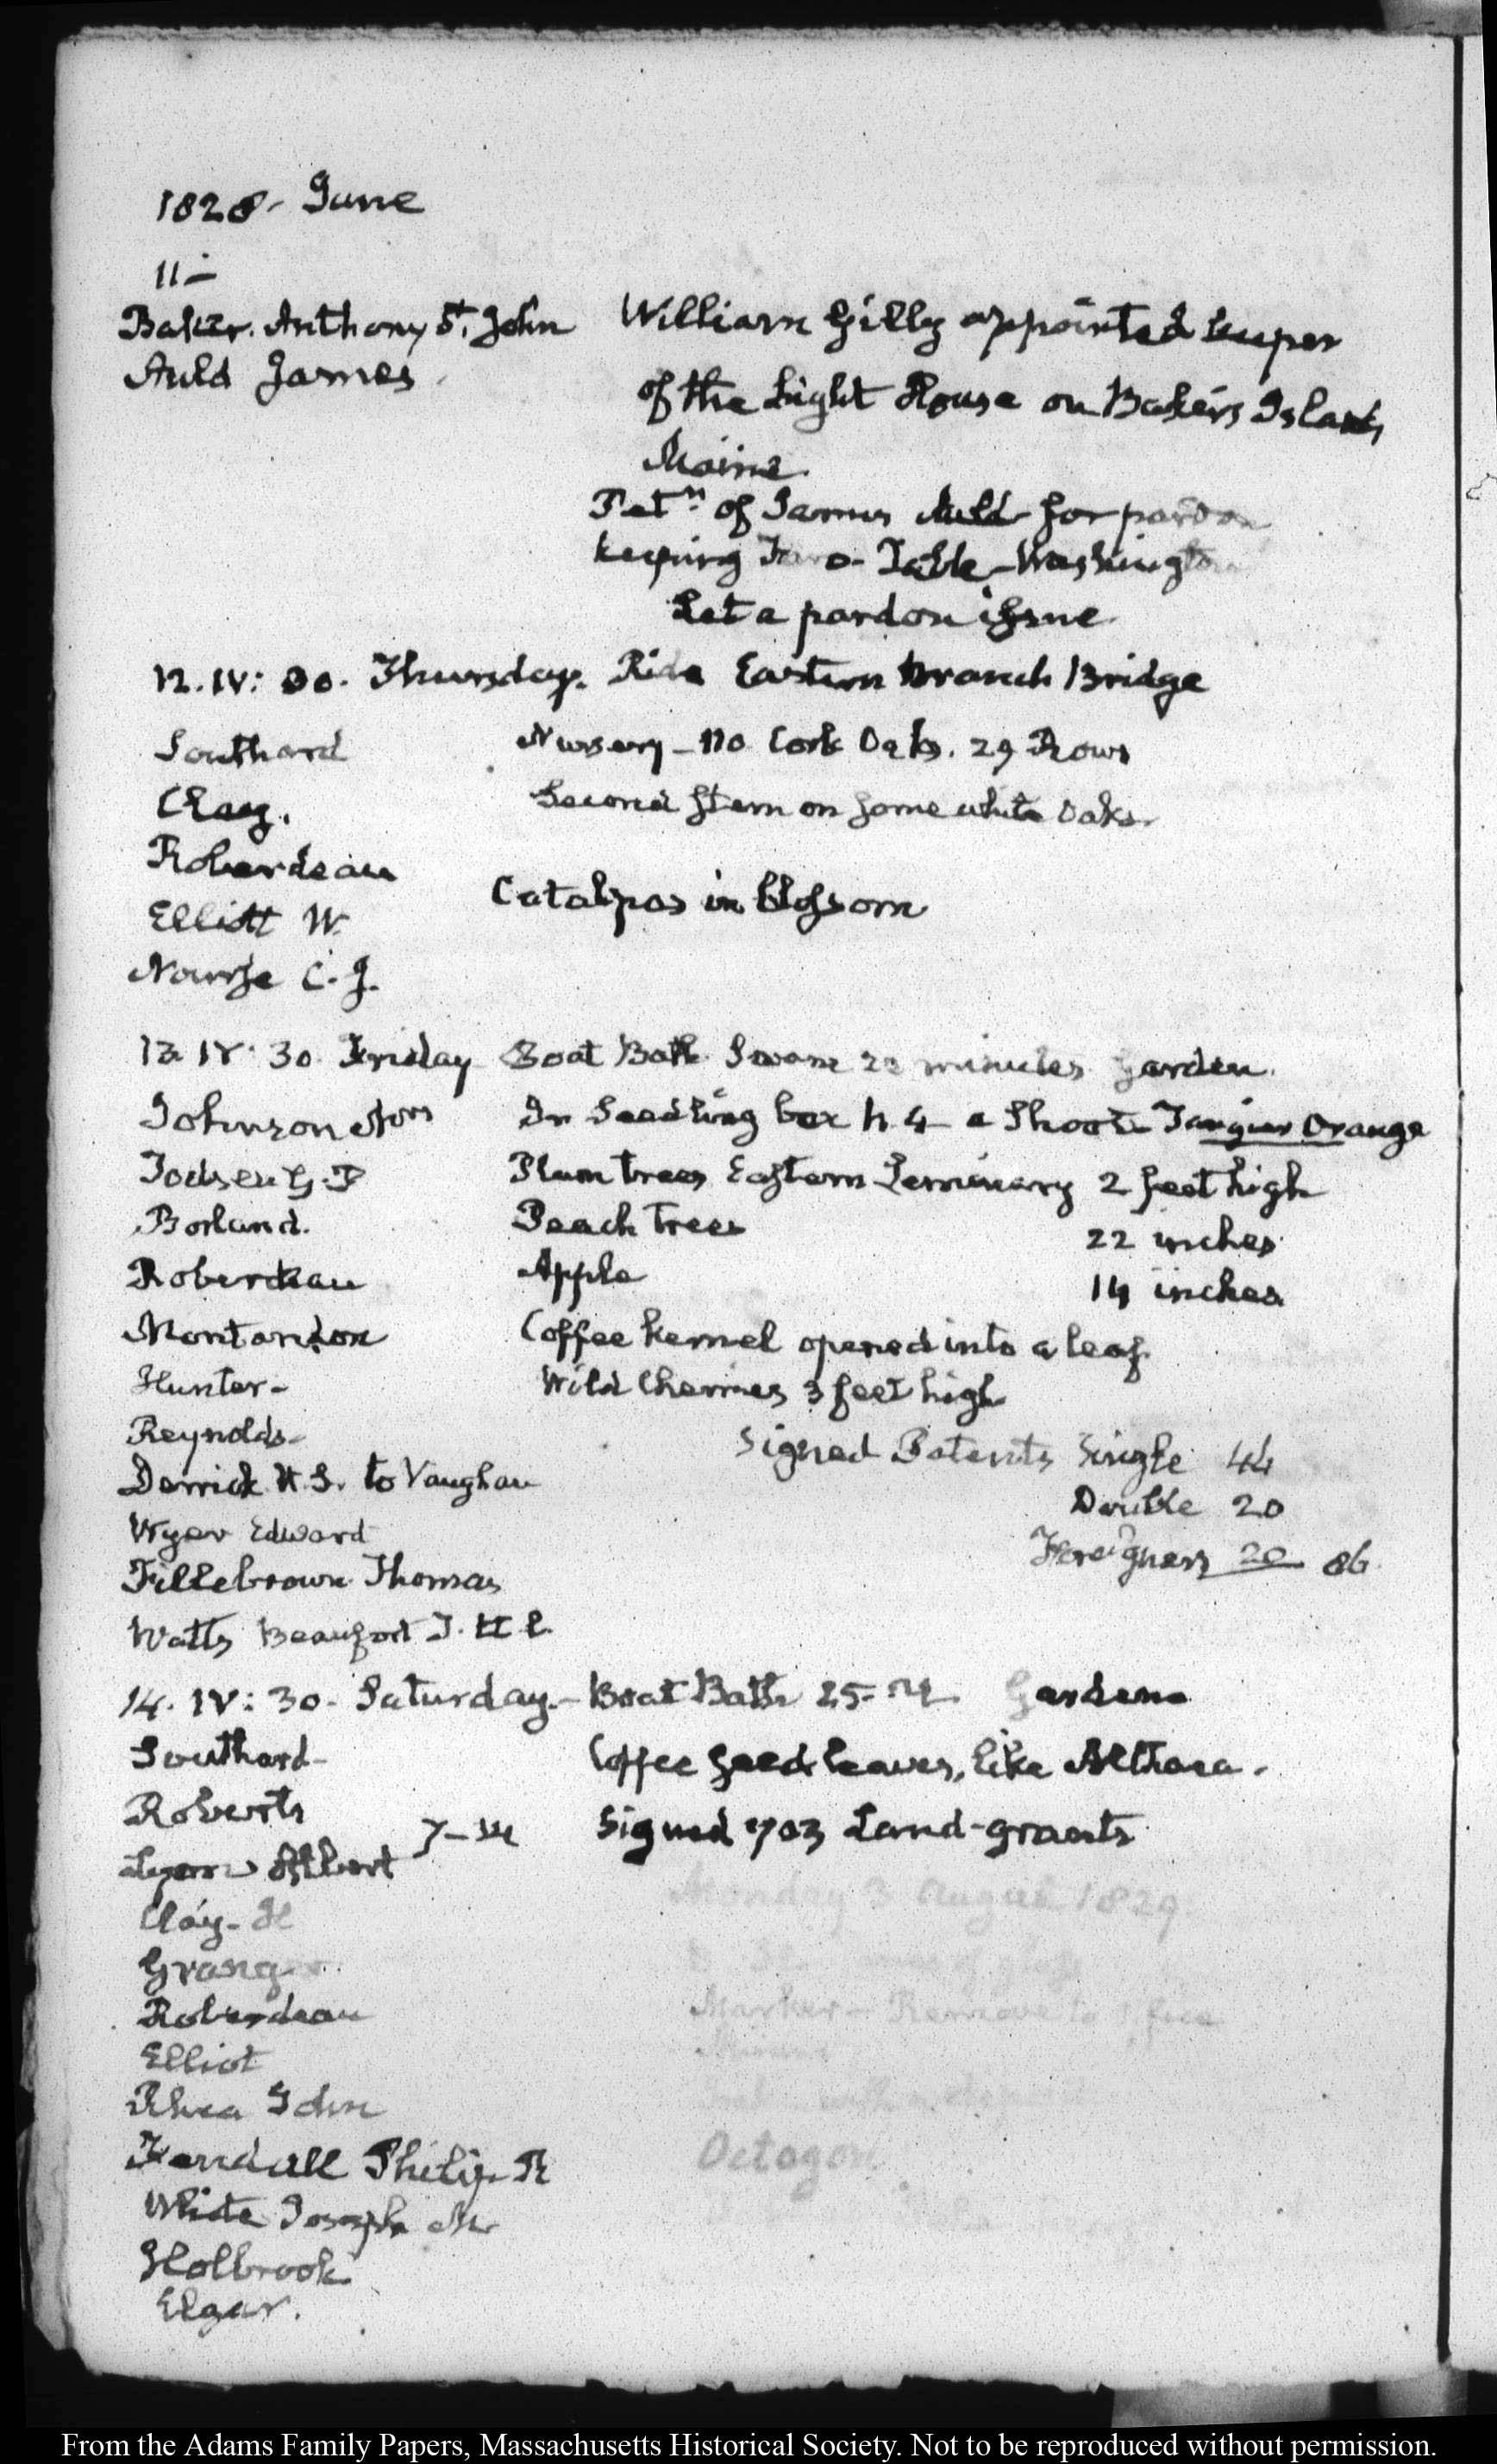 1828 - June
11 -
Baker. Anthony St. John William Gilly appointed keeper
Auld James of the Light House on Baker's Island,
Maine.
Petn. of James Auld for pardon
keeping Faro-Table - Washington
Let a pardon issue
12. IV: 00. Thursday. Ride Eastern Branch Bridge
Southard Nursery - no Cork Oaks. 29 Rows
Clay. Second Stem on some white Oaks.
Roberdeau
Elliott W. Catalpas in blossom
Nourse C. J.
13 IV: 30. Friday Boat Bath. Swam 22 minutes Garden.
Johnson In Seedling box N. 4 a Shoot Tangier Orange
G. P Plum trees Eastern Seminary 2 feet high
Borland. Peach trees 22 inches
Roberdeau Apple 14 inches
Montandon Coffee kernel opened into a leaf.
Hunter - Wild Cherries 3 feet high
Reynolds - Signed Patents Single 44
Derrick W. S. to Vaughan Double 20
Wyer Edward Foreigners 22 86
Fillebrown Thomas
Watts Beaufort T.
14. IV: 30. Saturday. - Boat Bath 25. Garden
Southard - Coffee seed leaves, like Althaea.
Roberts Signed 703 Land-grants
Albert
Monday 3 August 1829.
Clay - H
Granger
Roberdeau Marker - Remove to
Elliot
Rhea John
Fendall Philip R Octagon
White Joseph M.
Holbrook
Elgar.
From the Adams Family Papers, Massachusetts Historical Society. Not to be reproduced without permission.